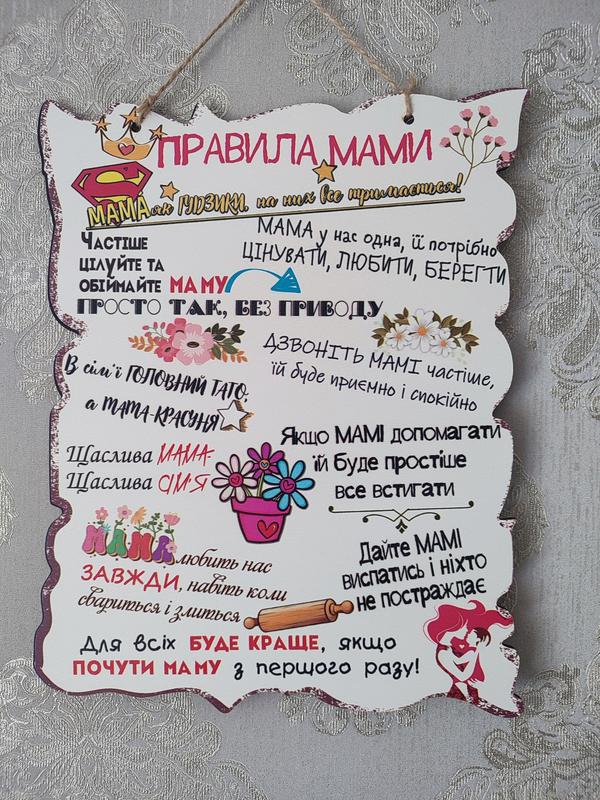 ПРАВИЛА МАМИ
МАМА як ҐУДЗИКИ, на них все тримається!
МАМА у нас одна, її потрібно
ЦІНУВАТИ, ЛЮБИТИ, БЕРЕГТИ
Частіше
цілуйте та
обіймайте МАМУ
ПРОСТО ТАК, БЕЗ ПРИВОДУ
ДЗВОНІТЬ МАМІ частіше,
їй буде приємно і спокійно
В сім'ї ГОЛОВНИЙ ТАТО,
а МАМА-КРАСУНЯ
Щаслива МАМА-
Щаслива СІМ'Я
Якщо МАМІ допомагати
їй буде простіше
все встигати
МАМА любить нас
ЗАВЖДИ, навіть коли
свариться і злиться
Дайте МАМІ
виспатись і ніхто
не постраждає
Для всіх БУДЕ КРАЩЕ, якщо
ПОЧУТИ МАМУ з першого разу!